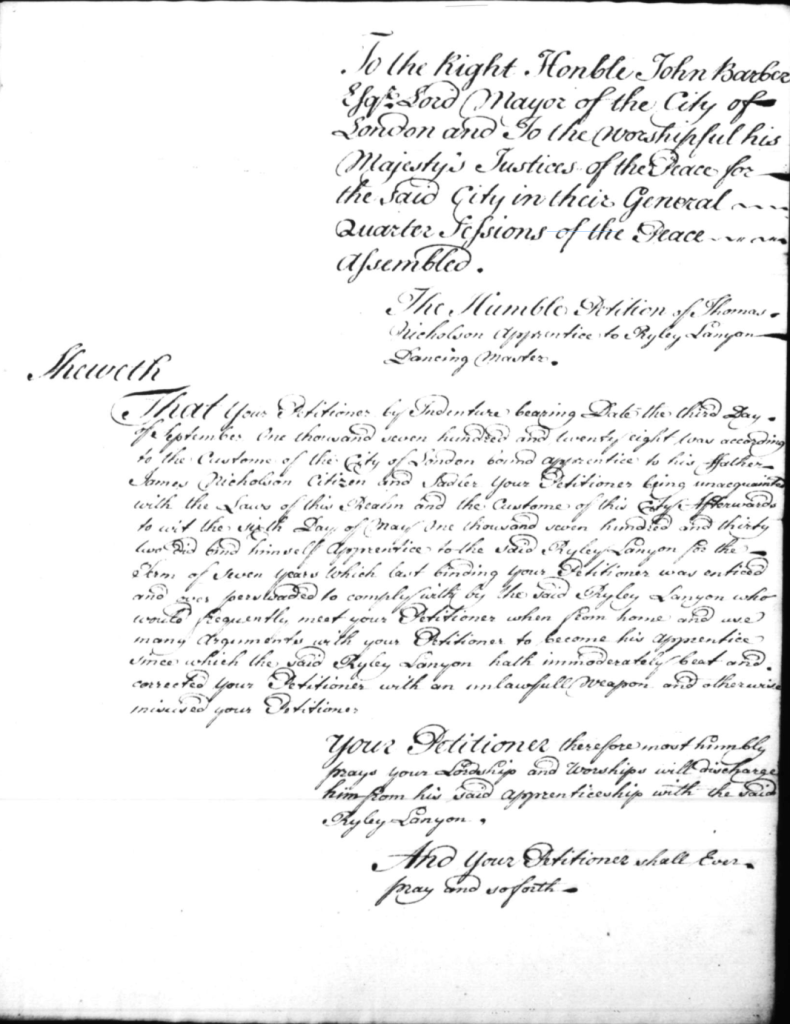 To the Right Honble John Barber
Esqr. Lord Mayor of the City of
London and To the Worshipful his
Majesty's Justices of the Peace for
the said City in their General
Quarter Sessions of the Peace
Assembled.
The Humble Petition of Thomas
Nicholson Apprentice to Ryley Lanyon
Dancing Master.
Sheweth
That Your Petitioner by Indenture bearing Date the third Day
of September One thousand seven hundred and twenty eight was according
to the Custome of the City of London bound Apprentice to his Father
James Nicholson Citizen and Sadler Your Petitioner being unacquainted
with the Laws of this Realm and the Custome of this City Afterwards
to wit the sixth Day of May One thousand seven hundred and thirty
two did bind himself Apprentice to the said Ryley Lanyon for the
Term of Seven Years which last binding your Petitioner was enticed
and over perswaded to comply with by the said Ryley Lanyon who
would frequently meet your Petitioner when from home and use
many Arguments with your Petitioner to become his Apprentice
since which the said Ryley Lanyon hath immoderately beat and
corrected Your Petitioner with an unlawfull Weapon and otherwise
misused your Petitioner
Your Petitioner therefore most humbly
prays your Lordship and Worships will discharge
him from his said Apprenticeship with the said
Ryley Lanyon.
And Your Petitioner shall Ever
pray and soforth